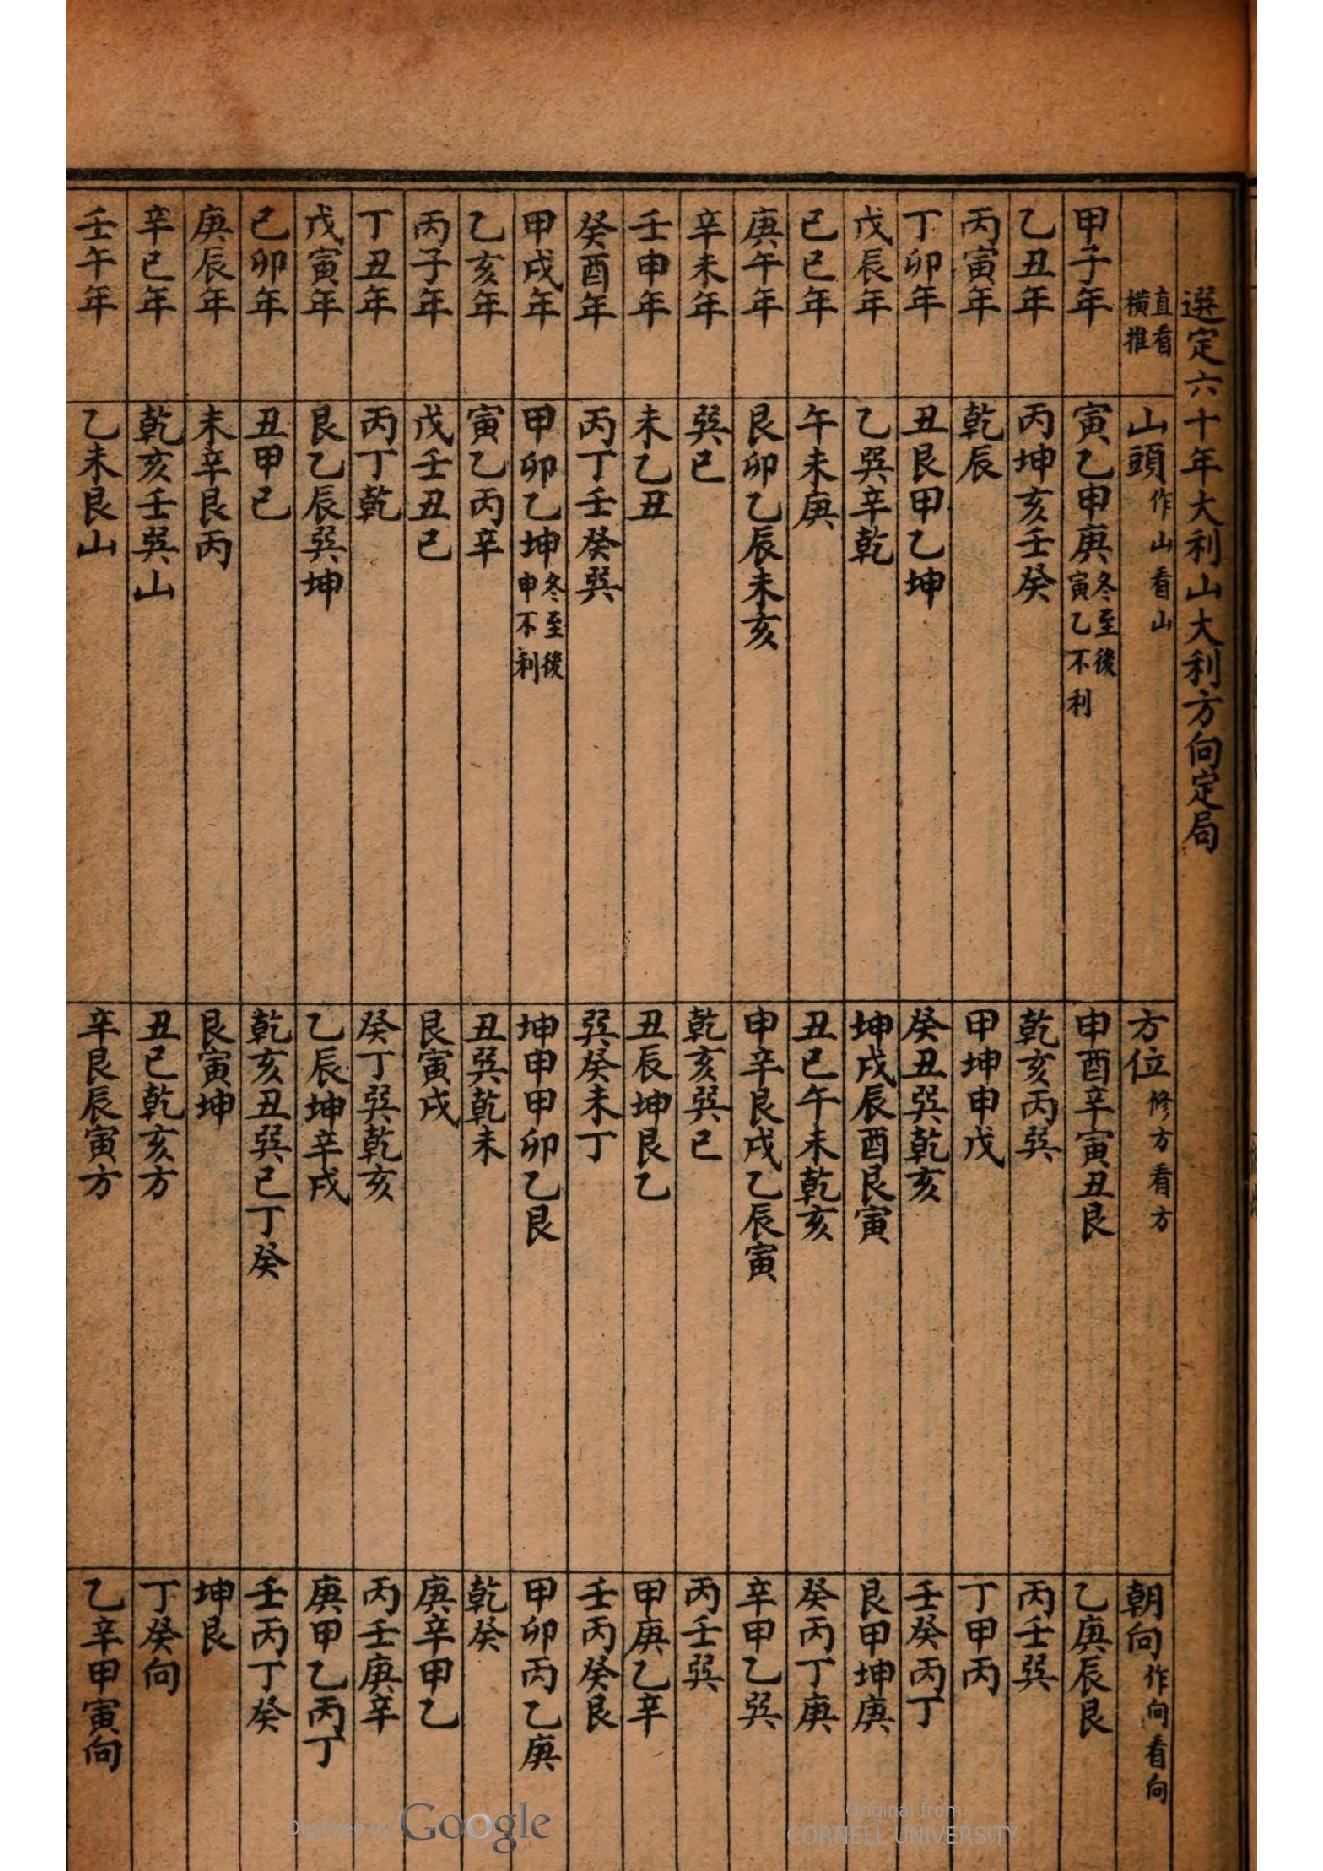 選定六十年大利山大利方向定局
直看橫推 山頭作山看山 方位修方看方 朝向作向看向
甲子年 寅乙申庚冬至後寅乙不利 申酉辛寅丑艮 乙庚辰艮
乙丑年 丙坤亥壬癸 乾亥丙巽 丙壬巽
丙寅年 乾辰 甲坤申戊 丁甲丙
丁卯年 丑艮甲乙坤 癸丑巽乾亥 壬癸丙丁
戊辰年 乙巽辛乾 坤戌辰酉艮寅 艮甲坤庚
己巳年 午未庚 丑巳午未乾亥 癸丙丁庚
庚午年 艮卯乙辰未亥 申辛艮戌乙辰寅 辛甲乙巽
辛未年 巽巳 乾亥巽巳 丙壬巽
壬申年 未乙丑 丑辰坤艮乙 甲庚乙辛
癸酉年 丙丁壬癸巽 巽癸未丁 壬丙癸艮
甲戌年 甲卯乙坤冬至後申不利 坤申甲卯乙艮 甲卯丙乙庚
乙亥年 寅乙丙辛 丑巽乾未 乾癸
丙子年 戊壬丑巳 艮寅戌 庚辛甲乙
丁丑年 丙丁乾 癸丁巽乾亥 丙壬庚辛
戊寅年 艮乙辰巽坤 乙辰坤辛戌 庚甲乙丙丁
己卯年 丑甲巳 乾亥丑巽巳丁癸 壬丙丁癸
庚辰年 未辛艮丙 艮寅坤 坤艮
辛巳年 乾亥壬巽山 丑巳乾亥方 丁癸向
壬午年 乙未艮山 辛艮辰寅方 乙辛甲寅向
Digitized by Google
Original from
CORNELL UNIVERSITY